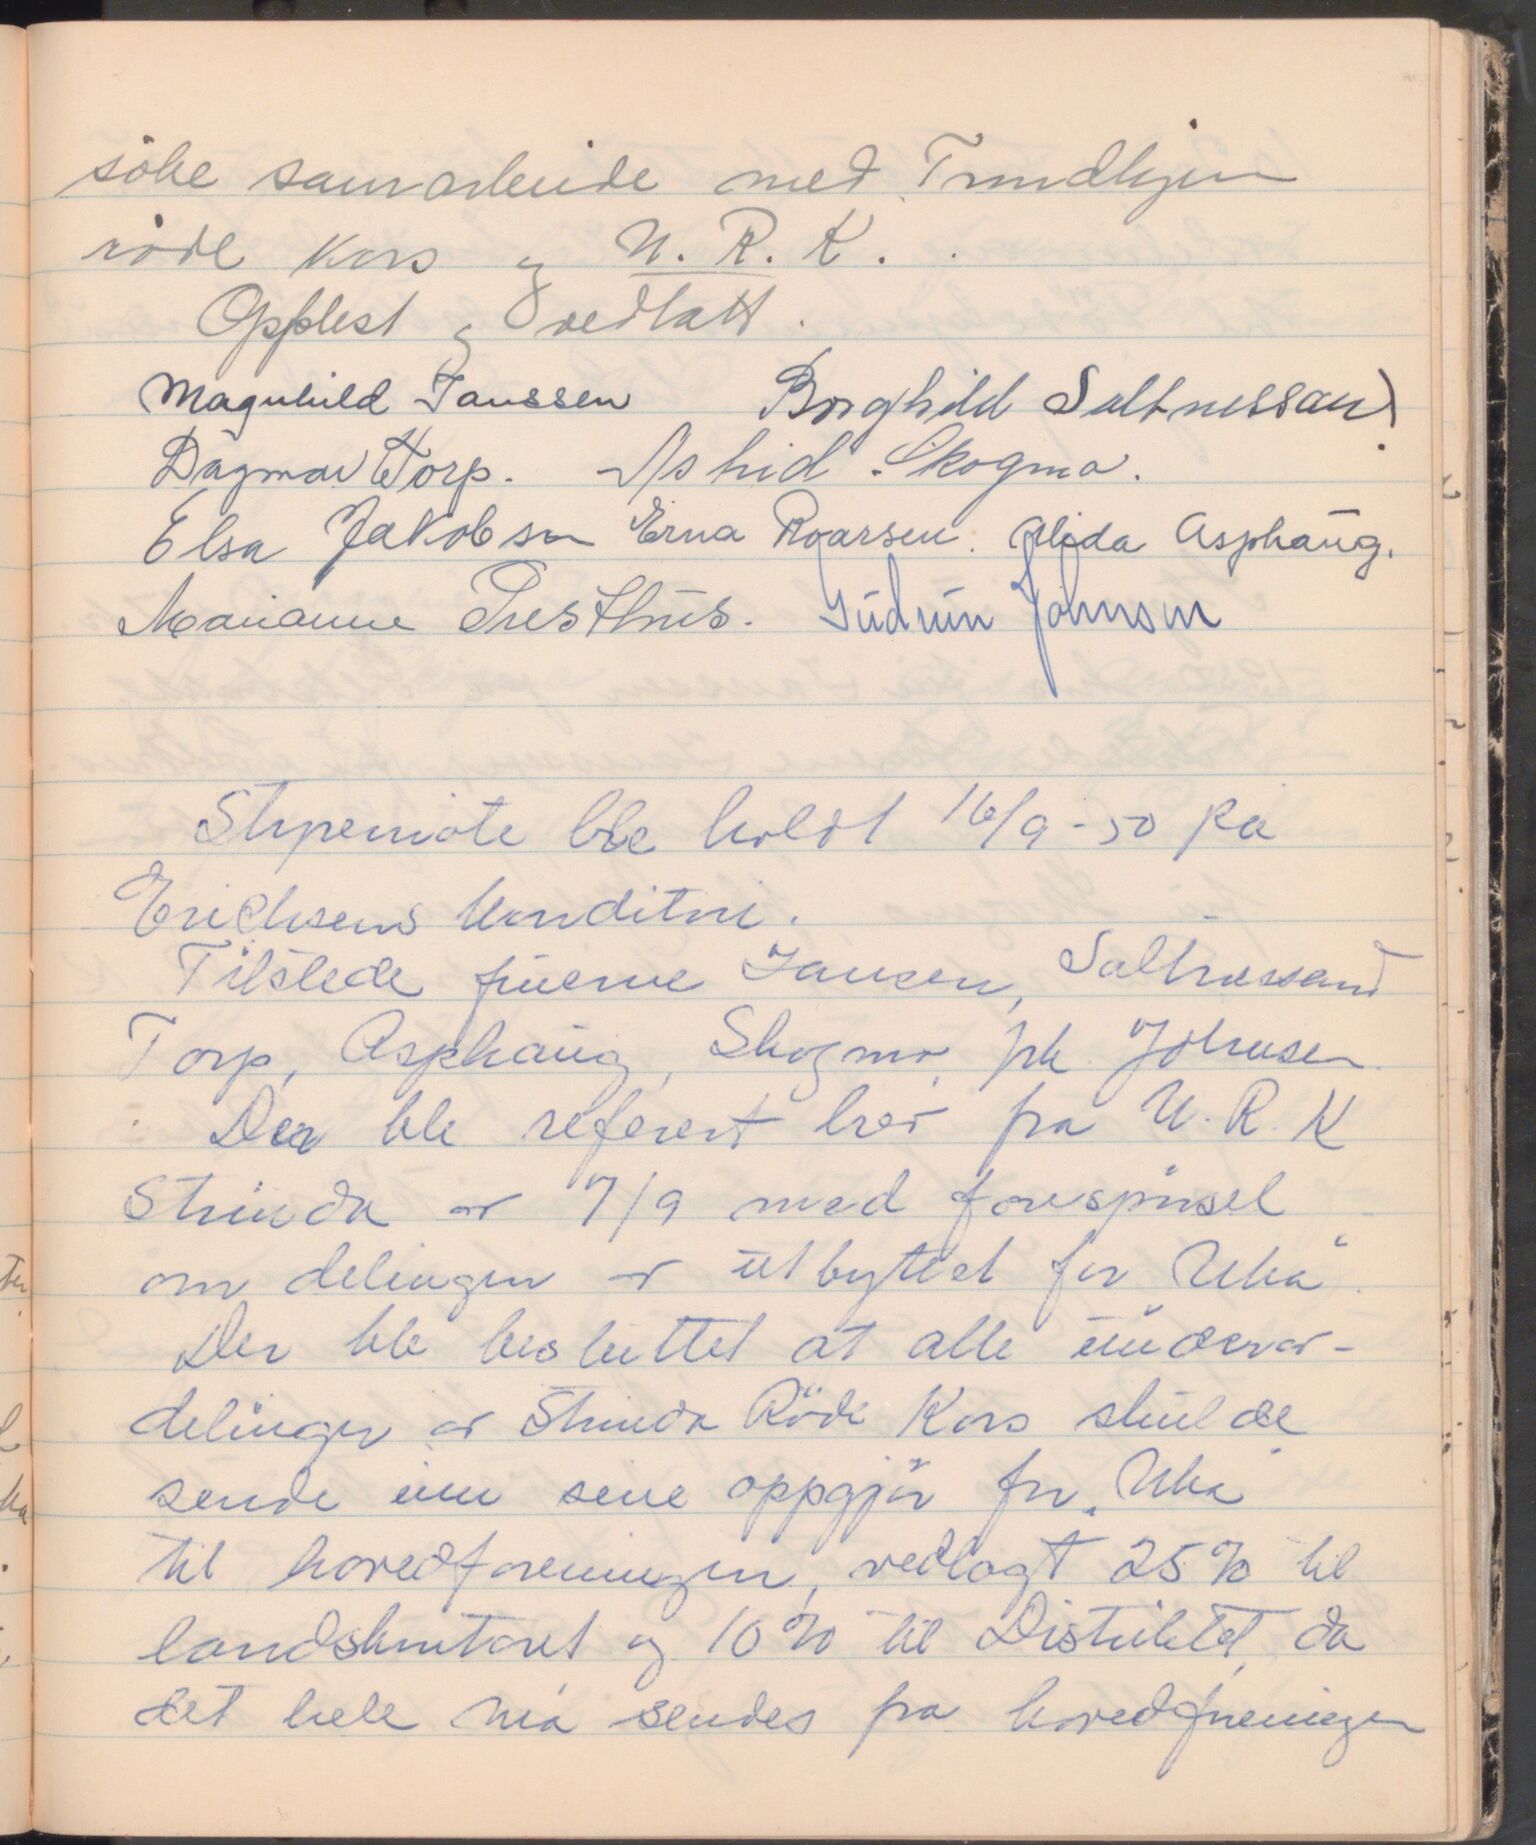 søke samarbeide med Trondhjem
røde Kors og U. R. K.
Opplest og vedtatt.
Magnhild Janssen Borghild Saltnessand
Dagmar Torp. Astrid Skogmo.
Elsa Jakobsen Erna Roarsen. Alida Asphaug.
Marianne Presthus. Gudrun Johnsen
Styremøte ble holdt 16/9-50 på
Erichsens Konditori.
Tilstede fruerne Jansen, Saltnessand
Torp, Asphaug, Skogmo, frk. Johnsen
Der ble referert brev fra U. R. K
Strinda av 7/9 med forespørsel
om delingen av utbyttet for Uka"
Der ble besluttet at alle underav-
delinger av Strinda Røde Kors skulde
sende inn sine oppgjør for "Uka"
til hovedforeningen, vedlagt 25% til
landskontoret og 10% til Distriktet, da
det hele må sendes fra hovedforeningen